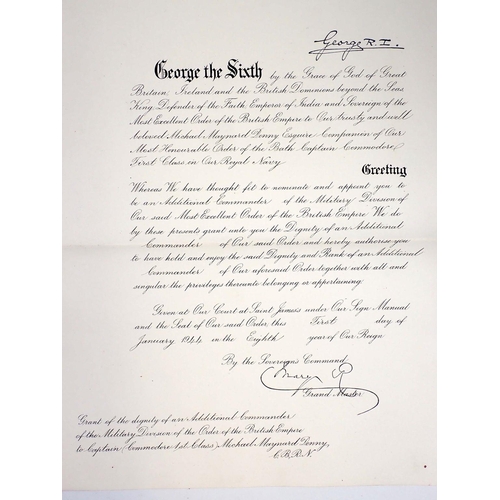 George R.I.
George the Sixth by the Grace of God of Great
Britain, Ireland and the British Dominions beyond the Seas,
King Defender of the Faith, Emperor of India and Sovereign of the
Most Excellent Order of the British Empire to Our trusty and well
beloved Michael Maynard Denny Esquire Companion of Our
Most Honourable Order of the Bath Captain Commodore
First Class in Our Royal Navy
Greeting
Whereas We have thought fit to nominate and appoint you to
be an Additional Commander of the Military Division of
Our said Most Excellent Order of the British Empire We do
by these presents grant unto you the Dignity of an Additional
Commander of Our said Order and hereby authorise you
to have hold and enjoy the said Dignity and Rank of an Additional
Commander of Our aforesaid Order together with all and
singular the privileges thereunto belonging or appertaining.
Given at Our Court at Saint James's under Our Sign Manual
and the Seal of Our said Order, this First day of
January 1944 in the Eighth year of Our Reign
By the Sovereign's Command,
Mary R
Grand Master
Grant of the dignity of an Additional Commander
of the Military Division of the Order of the British Empire
to Captain (Commodore 1st Class) Michael Maynard Denny,
C.B. R.N.